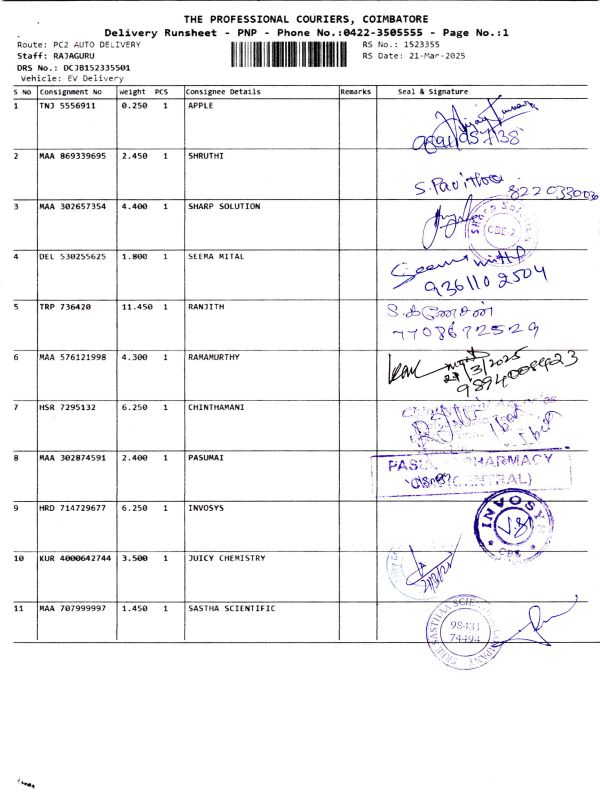 THE PROFESSIONAL COURIERS, COIMBATORE
Delivery Runsheet - PNP - Phone No.:0422-3505555 - Page No.:1
Route: PC2 AUTO DELIVERY RS No.: 1523355
Staff: RAJAGURU RS Date: 21-Mar-2025
DRS No.: DCJB152335501
Vehicle: EV Delivery
S No Consignment No Weight PCS Consignee Details Remarks Seal & Signature
1 TNJ 5556911 0.250 1 APPLE
2 MAA 869339695 2.450 1 SHRUTHI
S. Pavithra 8220330030
3 MAA 302657354 4.400 1 SHARP SOLUTION
CBE-2
4 DEL 530255625 1.800 1 SEEMA MITAL
Seema mittal
9361102504
5 TRP 736420 11.450 1 RANJITH
S. கணேசன்
7708672529
6 MAA 576121998 4.300 1 RAMAMURTHY
21/3/2025
9894008423
7 HSR 7295132 6.250 1 CHINTHAMANI
8 MAA 302874591 2.400 1 PASUMAI
PHARMACY
(CENTRAL)
9 HRD 714729677 6.250 1 INVOSYS
INVOSYS
CBE
10 KUR 4000642744 3.500 1 JUICY CHEMISTRY
11 MAA 707999997 1.450 1 SASTHA SCIENTIFIC
98431
74494
COMPANY